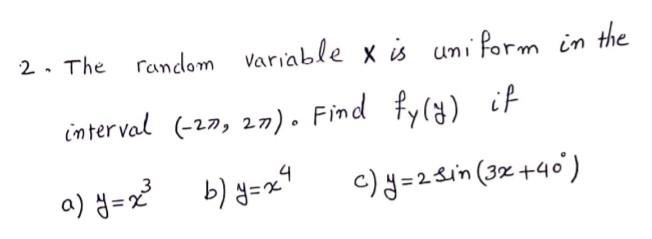 2. The random variable x is uniform in the
interval (-2π, 2π). Find f_y(y) if
a) y=x³ b) y=x⁴ c) y=2sin(3x+40°)